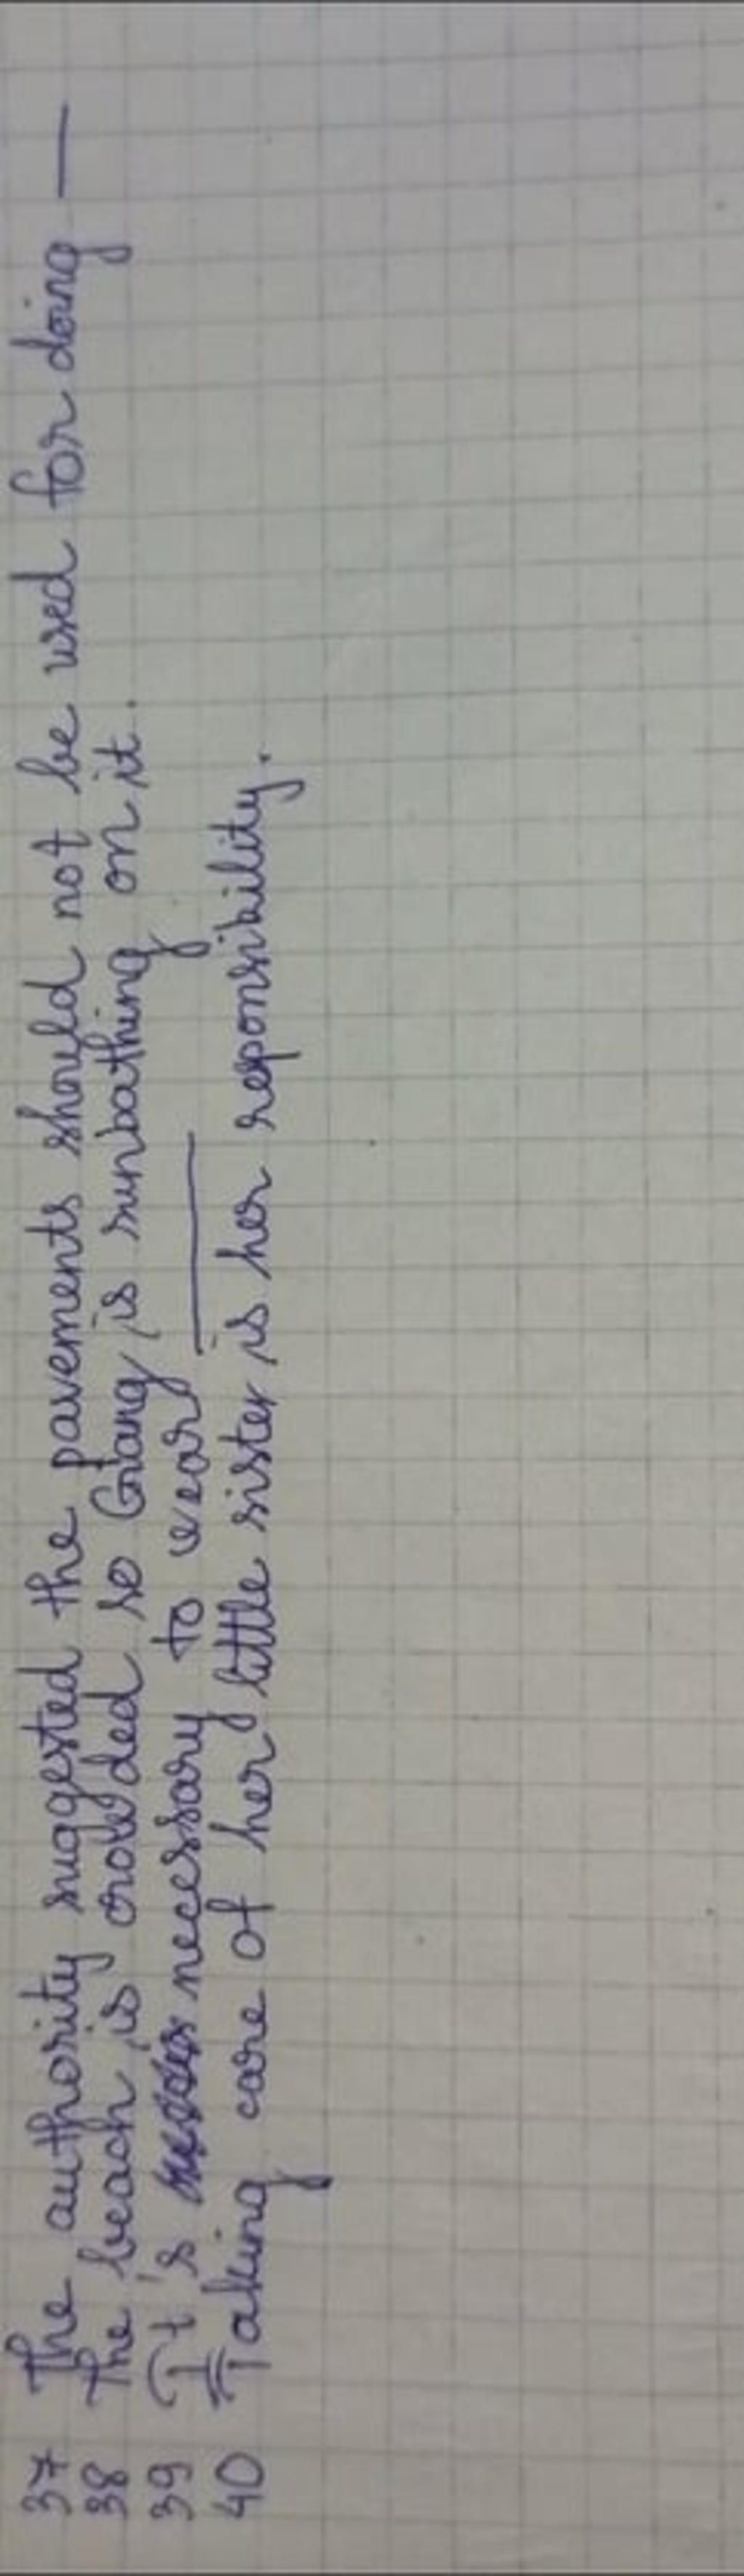 37 The authority suggested the pavements should not be used for doing —
38 The beach is crowded so Giang is sunbathing on it.
39 It's necessary to wear ____
40 Taking care of her little sister is her reponsibility.